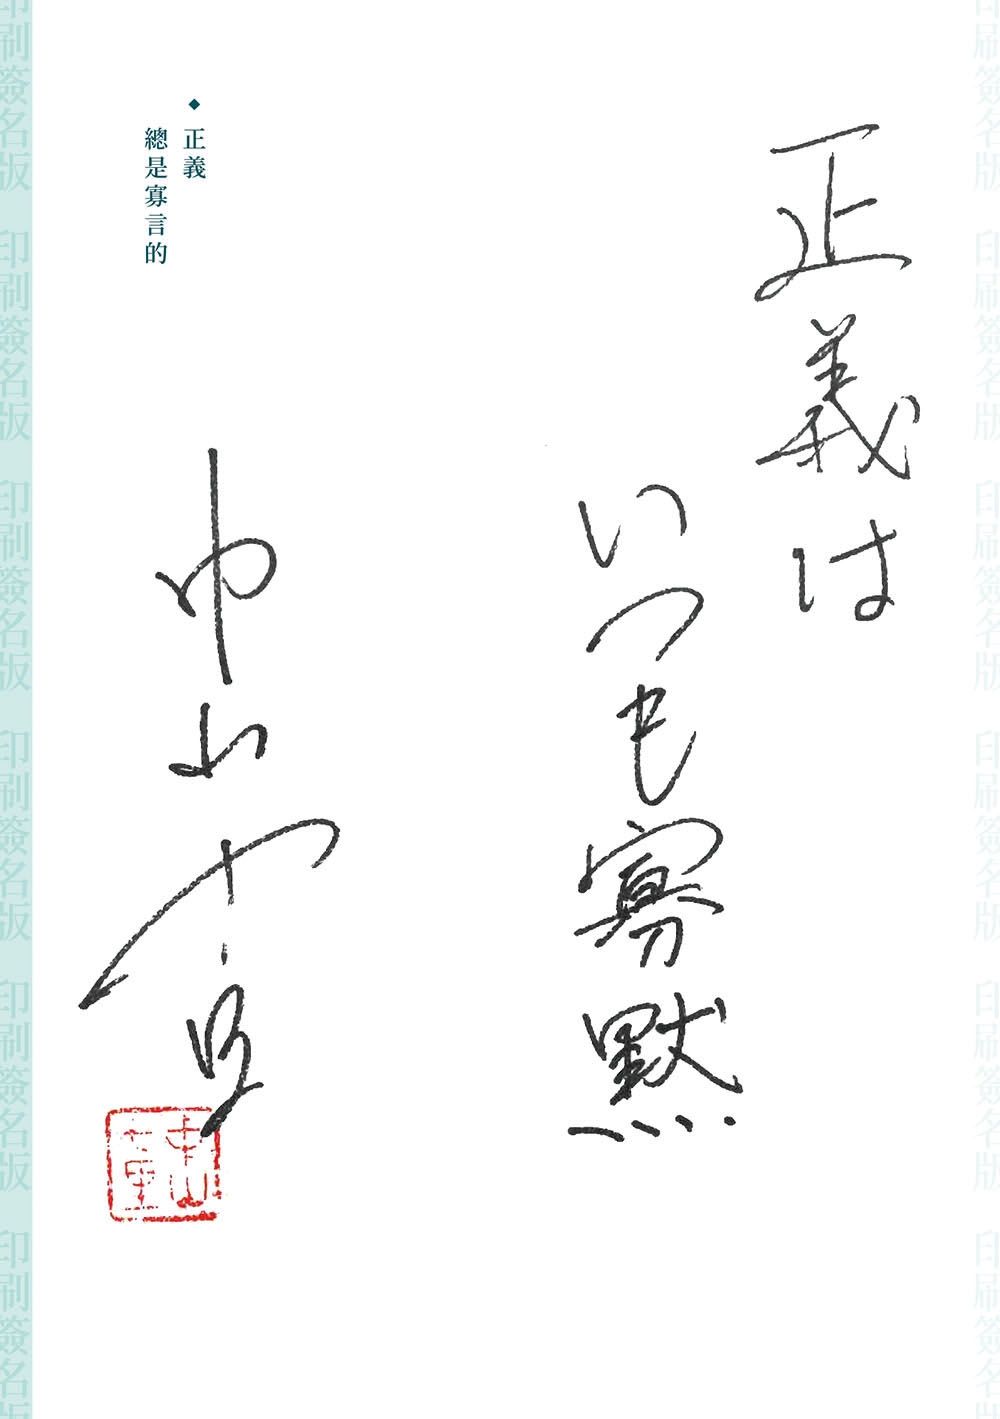 印刷簽名版 印刷簽名版 印刷簽名版 印刷簽名版 印刷簽名版 印刷簽名版
正義は
いつも寡黙
正義
總是寡言的
中山七里
中山
七里
印刷簽名版 印刷簽名版 印刷簽名版 印刷簽名版 印刷簽名版 印刷簽名版